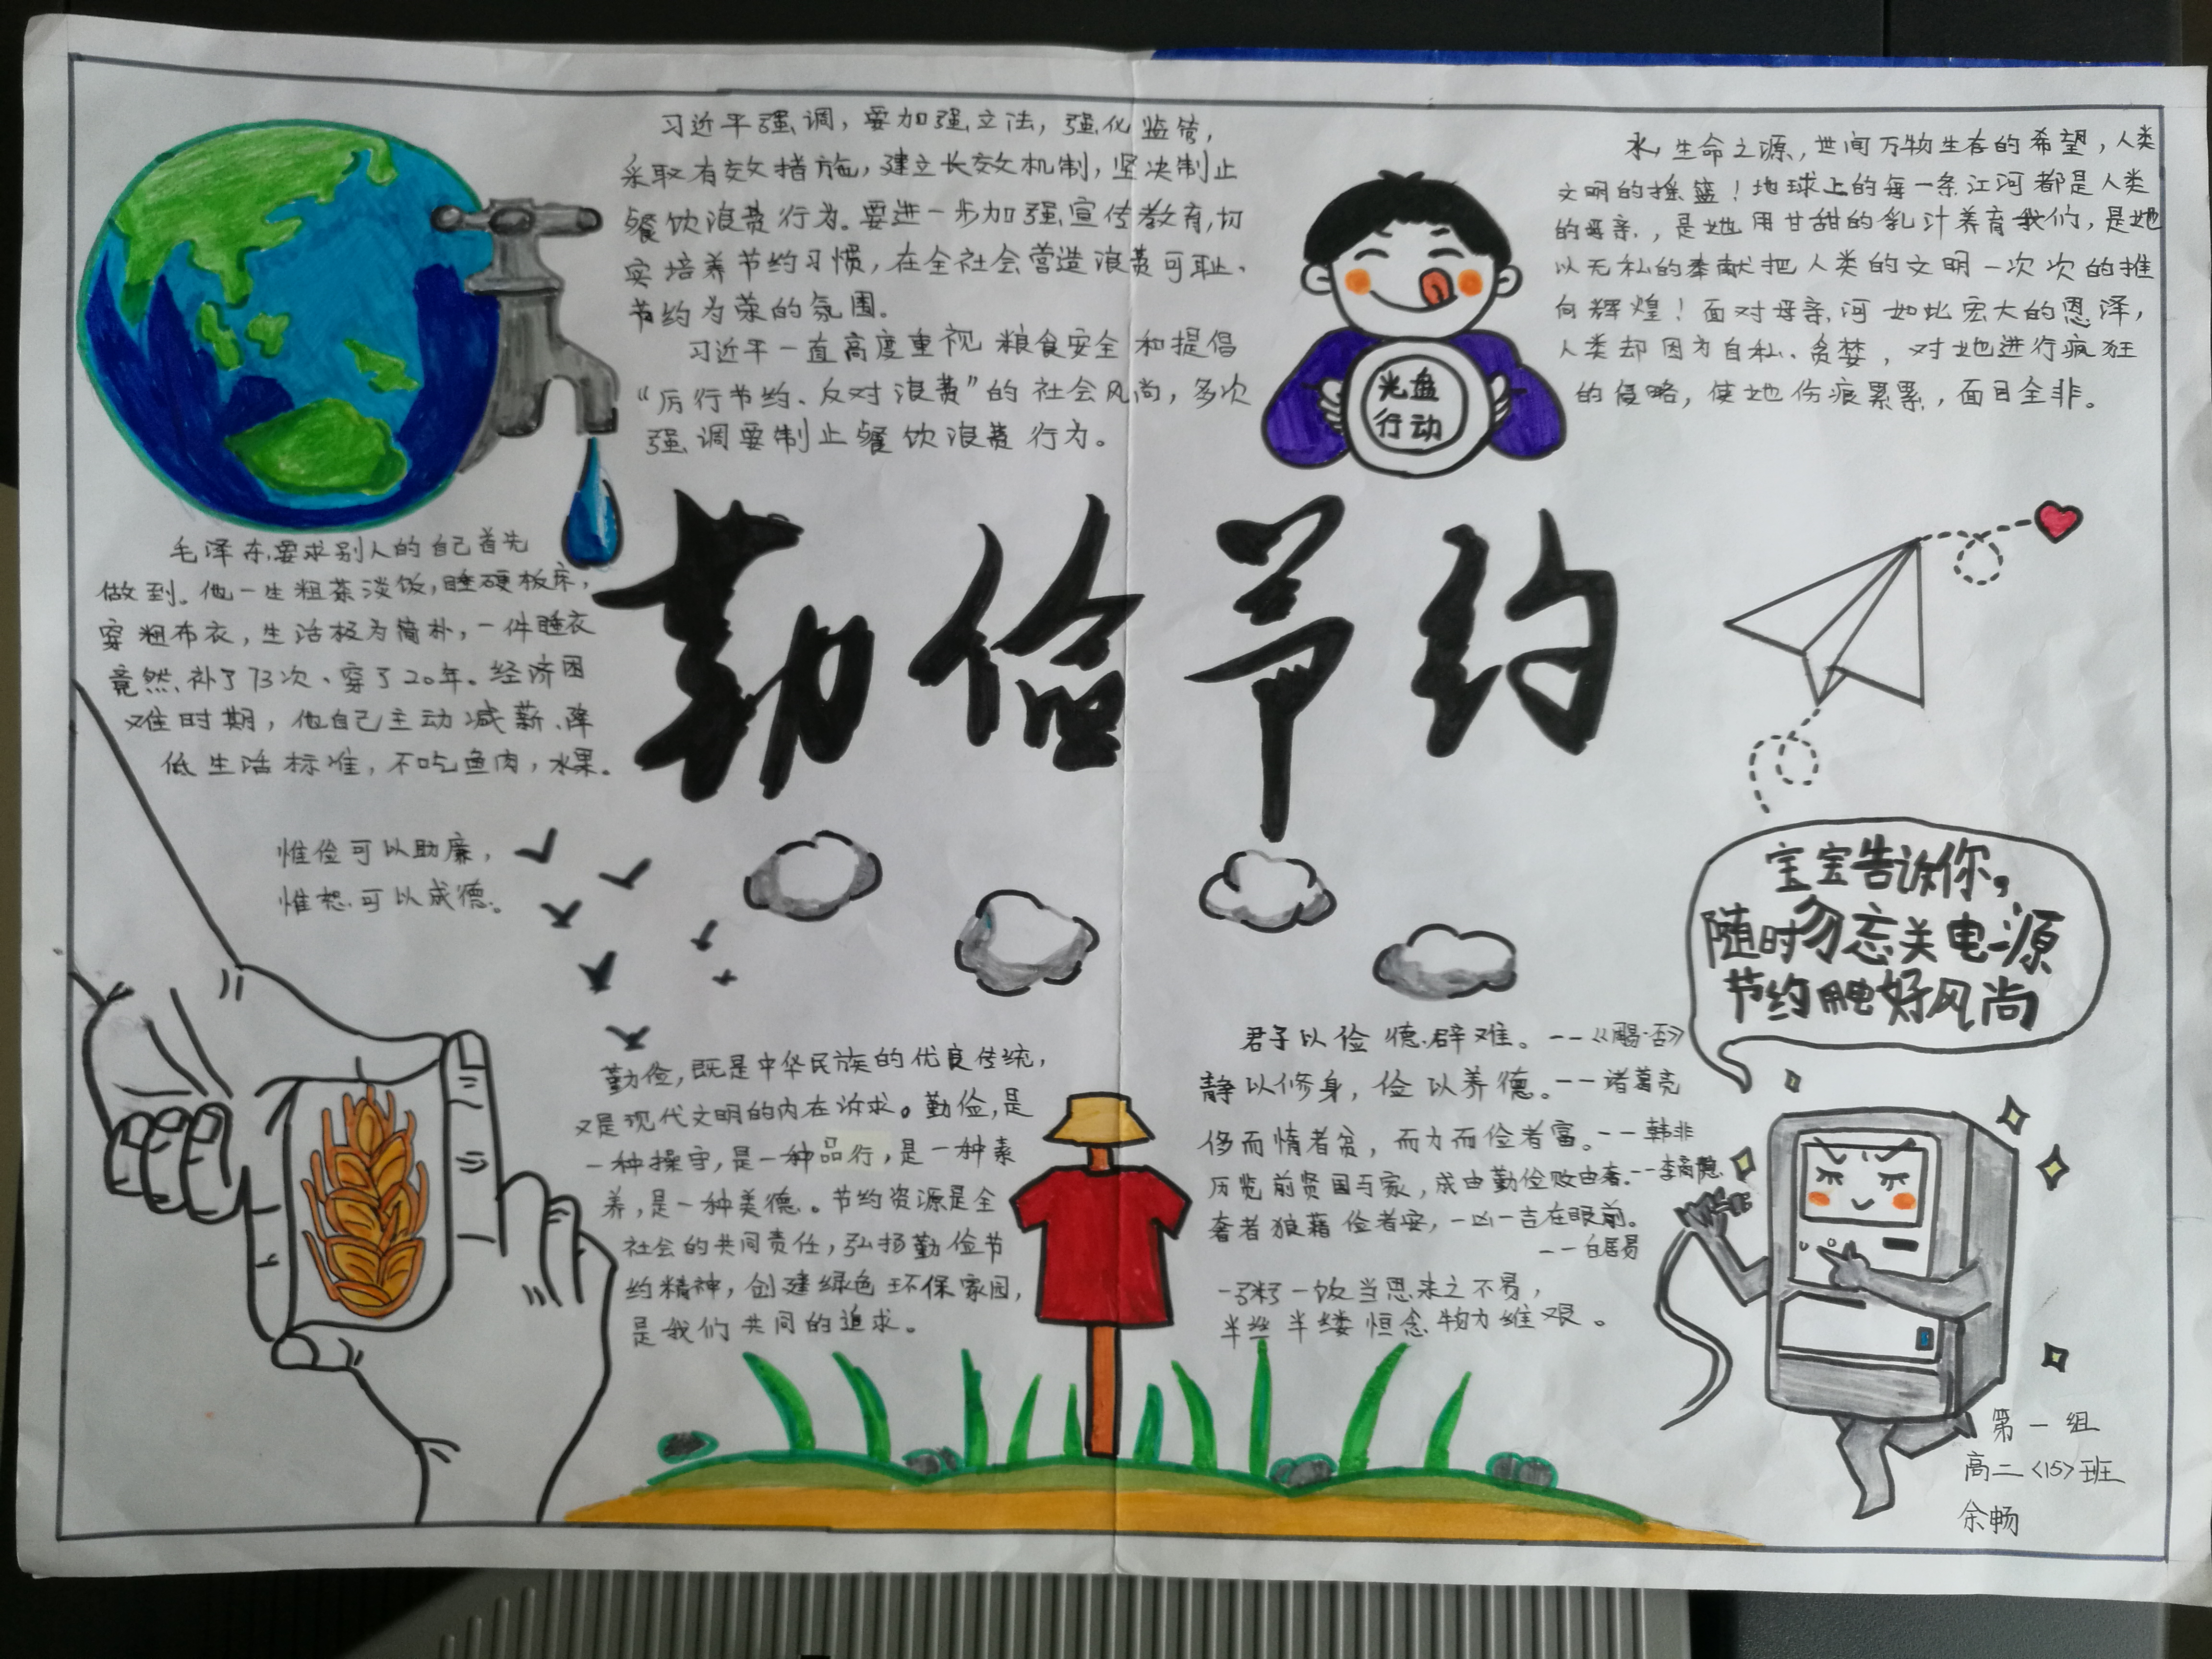 习近平强调，要加强立法，强化监管，
采取有效措施，建立长效机制，坚决制止
餐饮浪费行为。要进一步加强宣传教育，切
实培养节约习惯，在全社会营造浪费可耻、
节约为荣的氛围。
习近平一直高度重视粮食安全和提倡
“厉行节约、反对浪费”的社会风尚，多次
强调要制止餐饮浪费行为。
光盘
行动
水，生命之源，世间万物生存的希望，人类
文明的摇篮！地球上的每一条江河都是人类
的母亲，是她用甘甜的乳汁养育我们，是她
以无私的奉献把人类的文明一次次的推
向辉煌！面对母亲河如此宏大的恩泽，
人类却因为自私、贪婪，对她进行疯狂
的侵略，使她伤痕累累，面目全非。
勤俭节约
毛泽东要求别人的自己首先
做到。他一生粗茶淡饭，睡硬板床，
穿粗布衣，生活极为简朴，一件睡衣
竟然补了73次、穿了20年。经济困
难时期，他自己主动减薪、降
低生活标准，不吃鱼肉，水果。
惟俭可以助廉，
惟恕可以成德。
宝宝告诉你，
随时勿忘关电源
节约用电好风尚
勤俭，既是中华民族的优良传统，
又是现代文明的内在诉求。勤俭，是
一种操守，是一种品行，是一种素
养，是一种美德。节约资源是全
社会的共同责任，弘扬勤俭节
约精神，创建绿色环保家园，
是我们共同的追求。
君子以俭德辟难。--《易·否》
静以修身，俭以养德。--诸葛亮
侈而惰者贫，而力而俭者富。--韩非
历览前贤国与家，成由勤俭败由奢。--李商隐
奢者狼藉俭者安，一凶一吉在眼前。
--白居易
一粥一饭当思来之不易，
半丝半缕恒念物力维艰。
第一组
高二〈15〉班
余畅